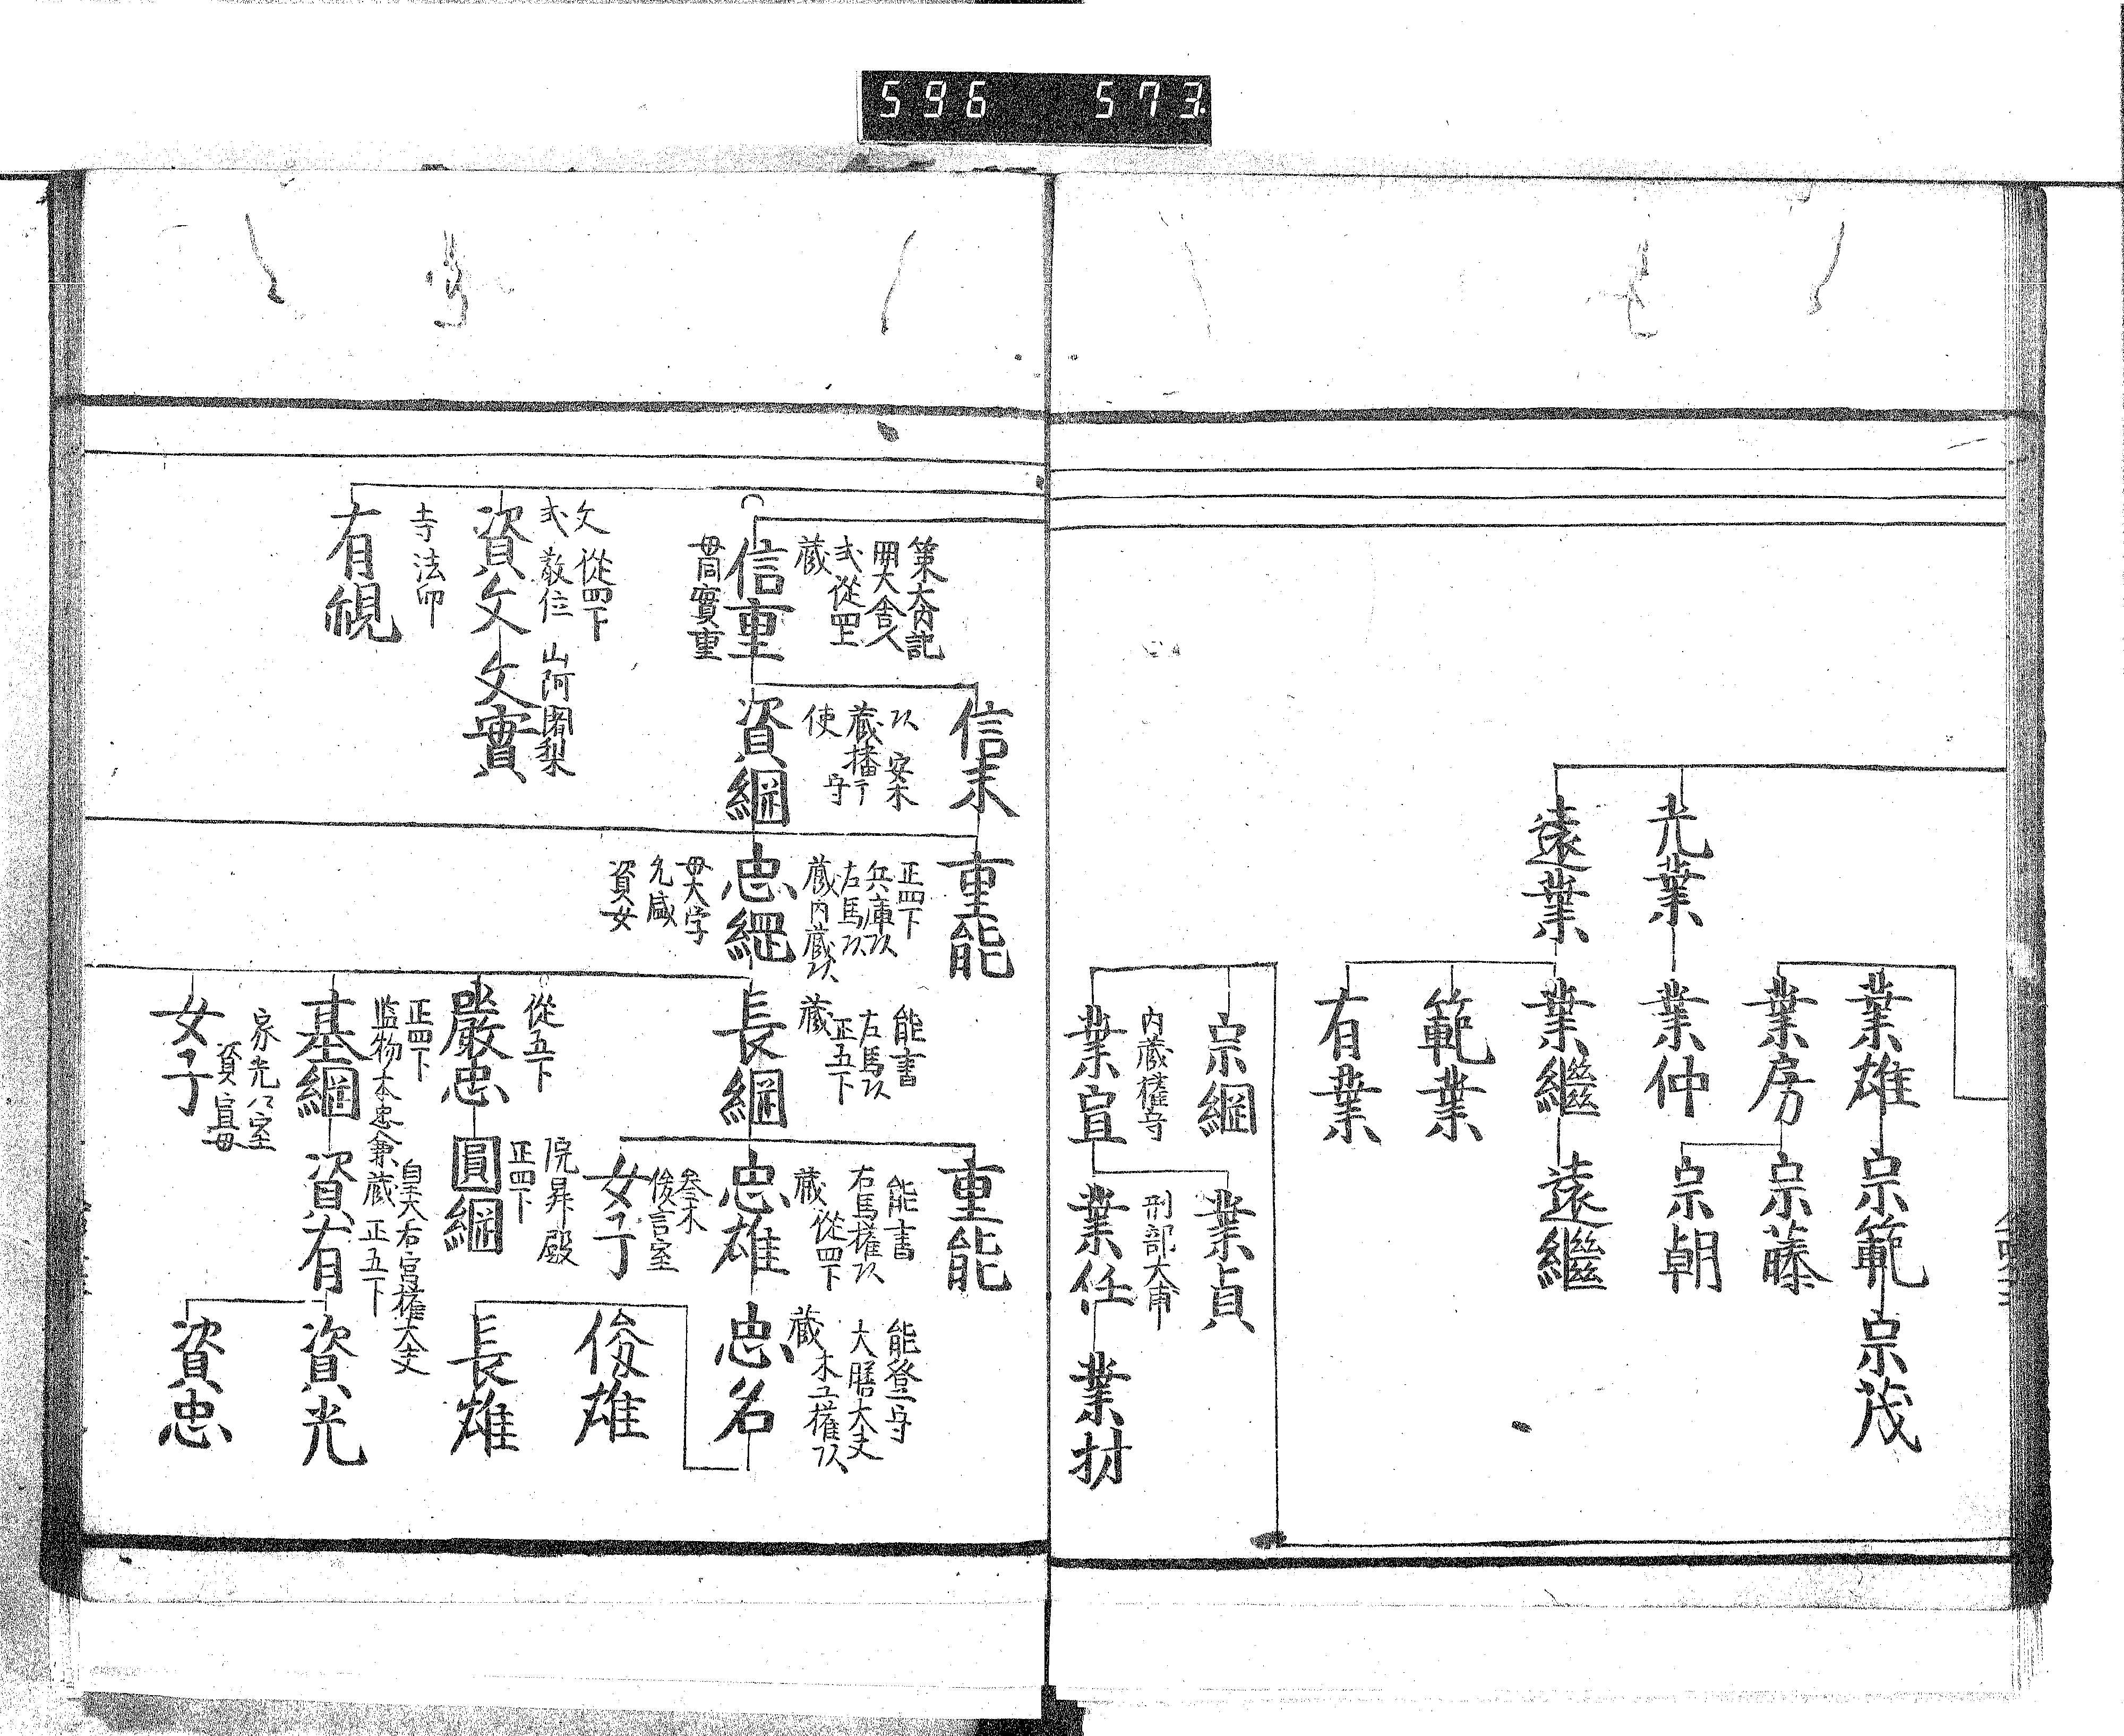 596 573
業雄
宗範
宗茂
業房
宗藤
宗朝
光業
業仲
遠業
業繼
遠繼
範業
有業
宗綱
内蔵権守
業宣
業貞
刑部大甫
業任
業材
策大内記
開大舎人
式従四上
蔵
信重
母同實重
信末
蔵播守
使
資綱
重能
正四下
兵庫以
左馬以
蔵内蔵以
忠綱
母大学
允盛
資女
能書
左馬以
正五下
蔵
長綱
重能
能書
右馬権以
従四下
蔵
忠雄
参木
俊言室
女子
能登守
大膳大夫
木工権以
蔵
忠名
俊雄
長雄
文従四下
式散位
資文
山阿闍梨
文實
寺法印
有視
従五下
嚴忠
院昇殿
正四下
圓綱
正四下
監物木忠兼蔵
基綱
皇大右宮権大夫
正五下
資有
資光
資忠
家光公室
資宣母
女子